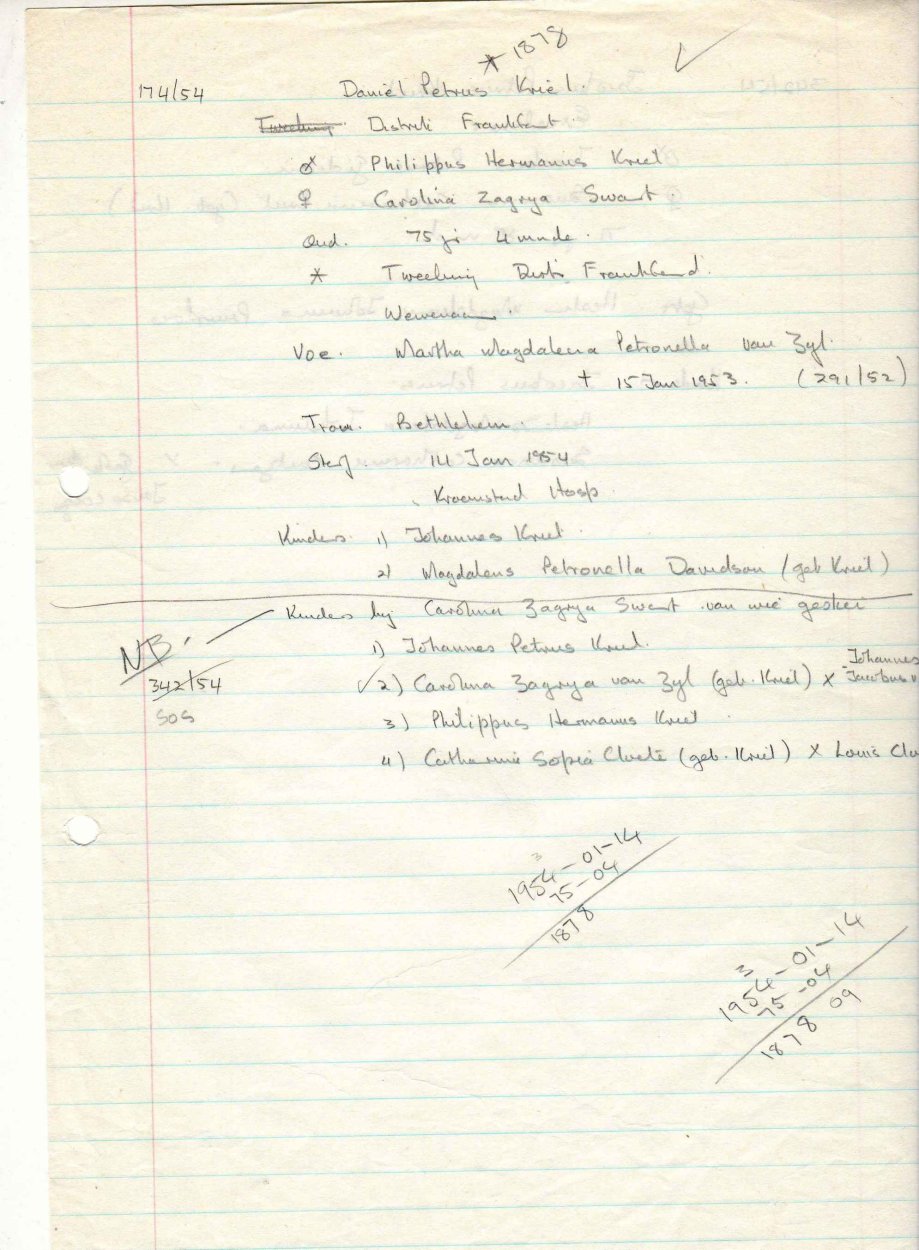 * 1878 ✓
174/54 Daniel Petrus Kriel.
Tweeling. Distrik Frankfort.
♂ Philippus Hermanus Kriel
♀ Carolina Zagrya Swart
Oud. 75 jr 4 mnde.
* Tweeling Distr. Frankford.
Wewenaar.
Voe. Martha Magdalena Petronella van Zyl.
† 15 Jan 1953. (291/52)
Trou. Bethlehem.
Sterf 14 Jan 1954
Kroonstad Hosp.
Kinders. 1) Johannes Kriel.
2) Magdalena Petronella Davidson (geb Kriel)
Kinders by Carolina Zagrya Swart van wie geskei
NB. 1) Johannes Petrus Kriel.
342/54 ✓2) Carolina Zagrya van Zyl (geb. Kriel) x Johannes Jacobus v
SOS 3) Philippus Hermanus Kriel.
4) Catharina Sophia Cloete (geb. Kriel) x Louis Clo
3
1954-01-14
75-04
1878
3
1954-01-14
75-04
1878 09